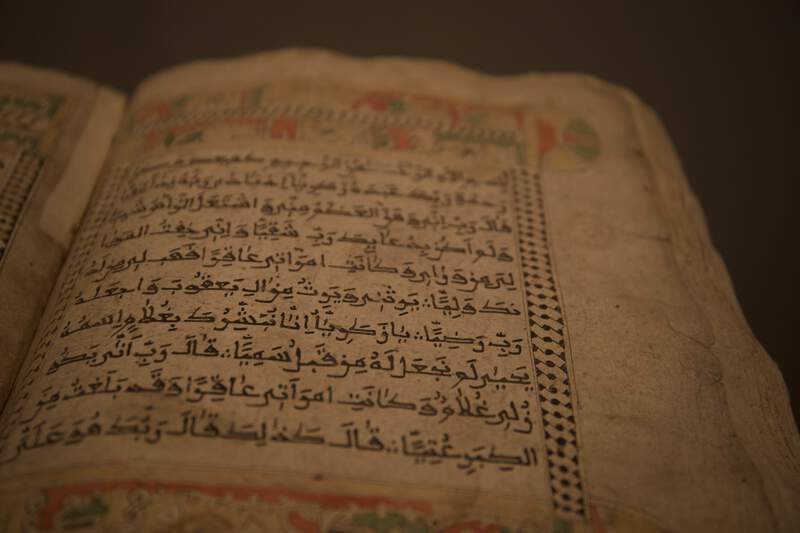 بسم الله الرحمن الرحيم كهيعص ذكر
رحمة ربك عبده زكريا إذ نادى ربه نداء خفيا
قال رب إني وهن العظم مني واشتعل الرأس شيبا
ولم أكن بدعائك رب شقيا وإني خفت الموا
لي من وراءي وكانت امرأتي عاقرا فهب لي من لد
نك وليا يرثني ويرث من آل يعقوب واجعله
رب رضيا يا زكريا إنا نبشرك بغلام اسمه
يحيى لم نجعل له من قبل سميا قال رب أنى يكو
ن لي غلام وكانت امرأتي عاقرا وقد بلغت من
الكبر عتيا قال كذلك قال ربك هو علي